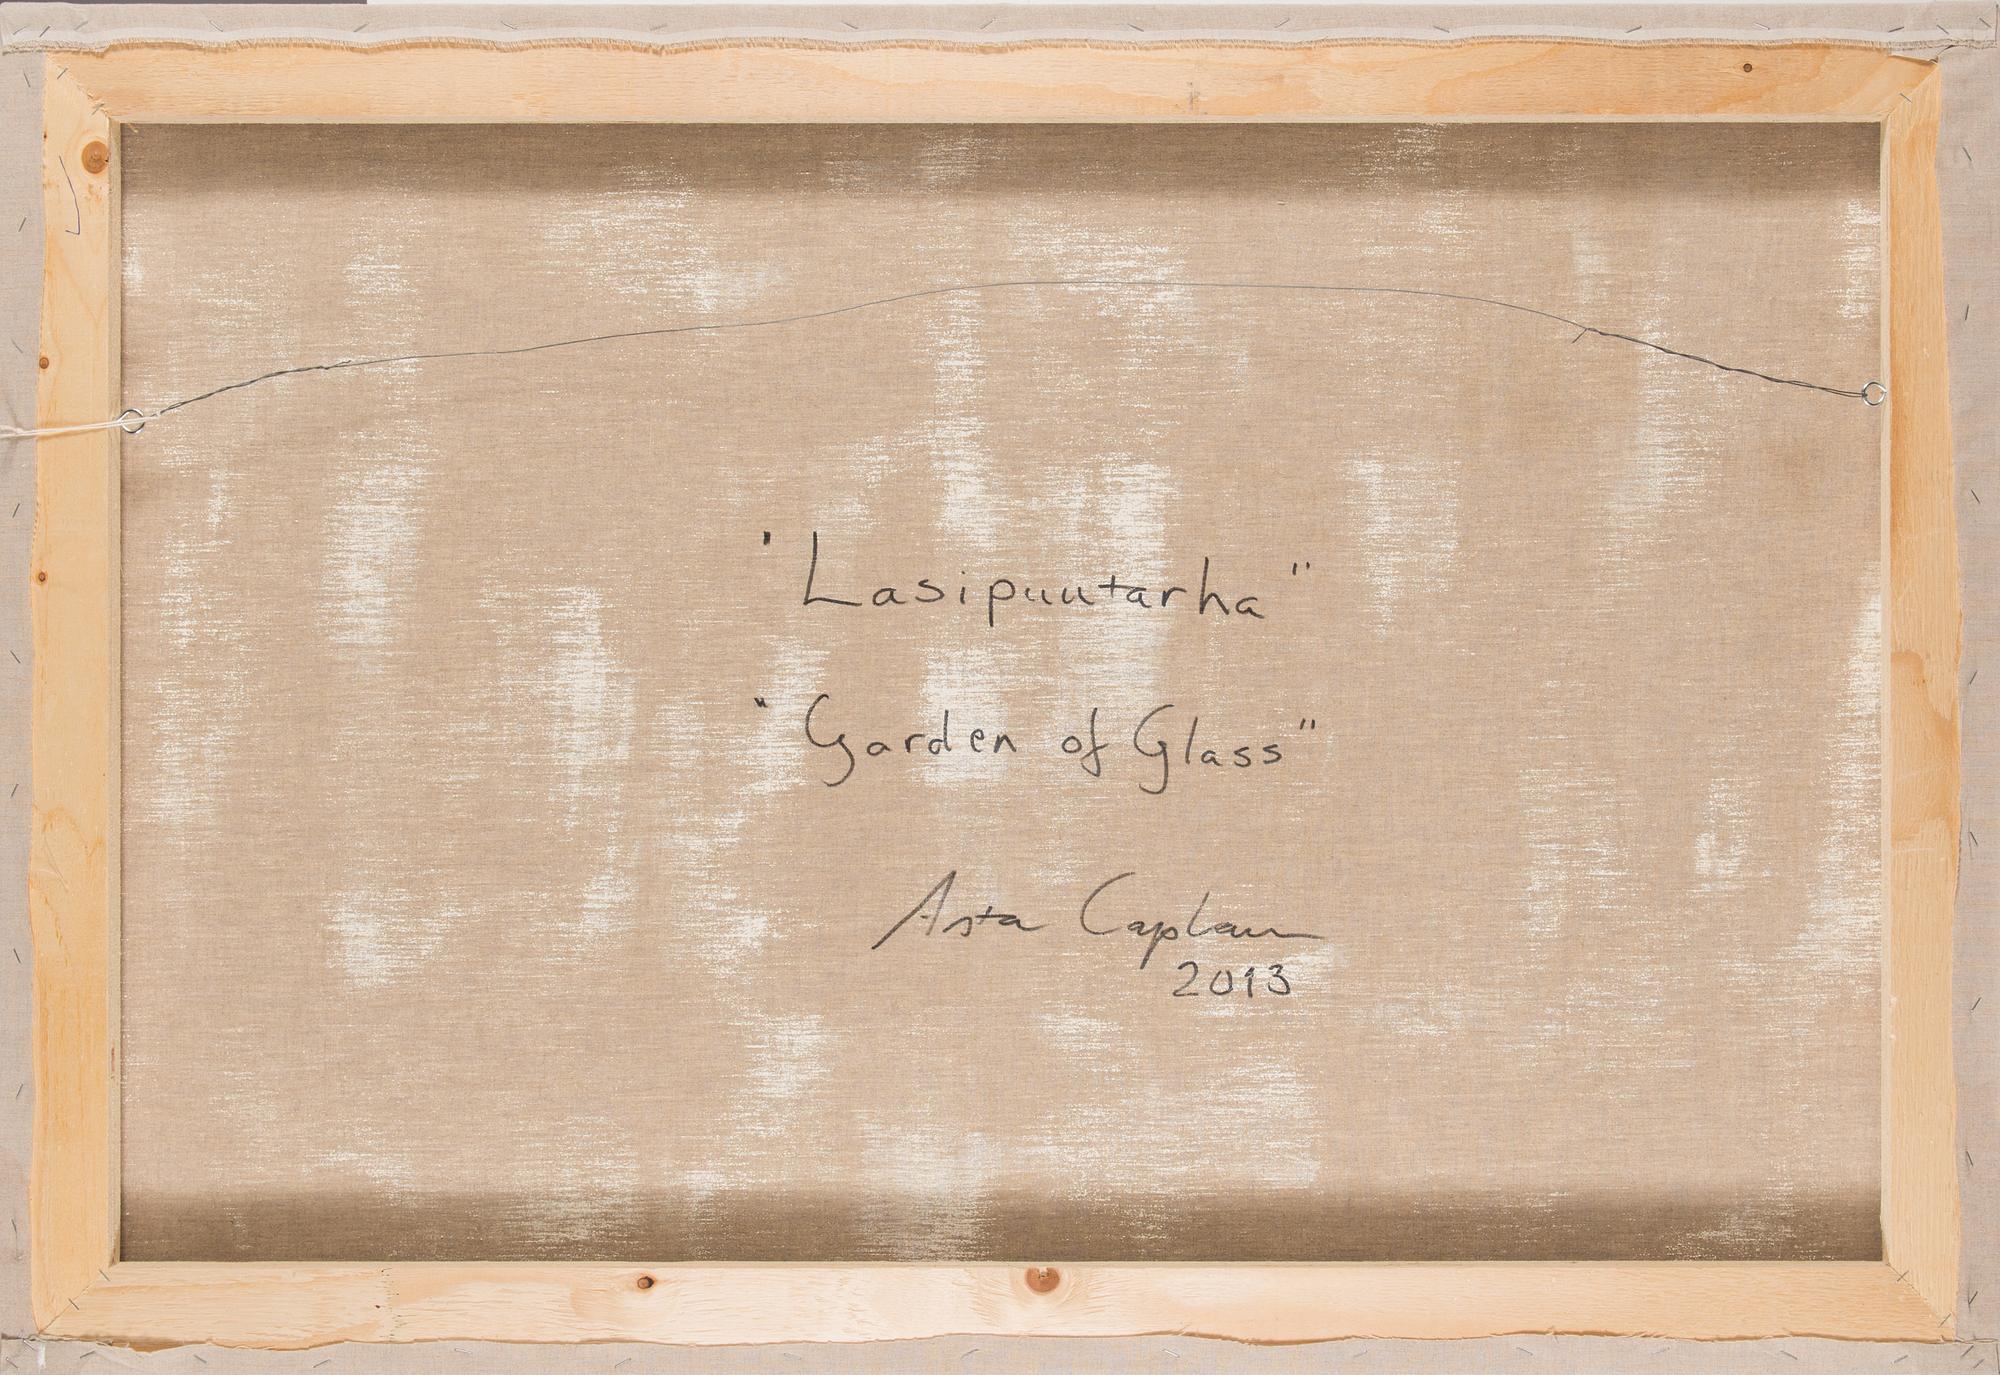 "Lasipuutarha"
"Garden of Glass"
Asta Caplan
2013